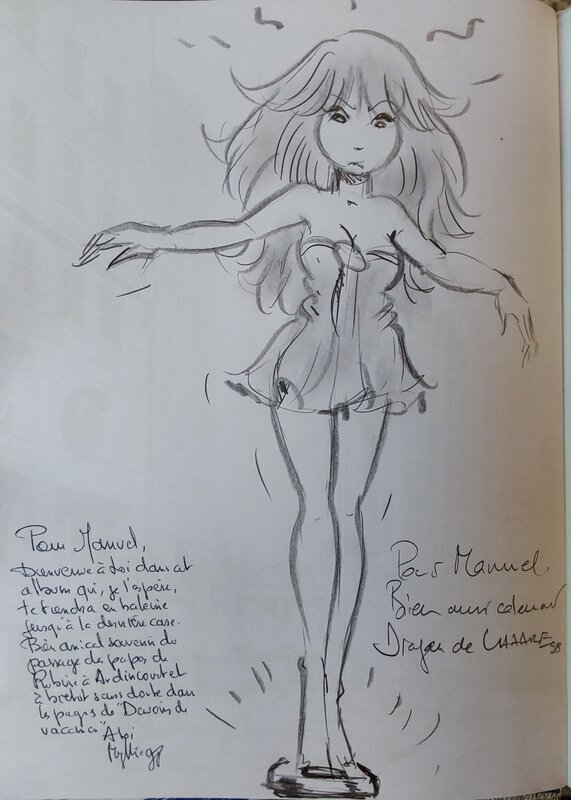 Pour Manuel,
Bienvenue à toi dans cet
album qui, je l'espère,
te tiendra en haleine
jusqu'à la dernière case.
Bien amical souvenir du
passage des papas de
à et
à bientôt sans doute dans
les pages de "Devoirs de
vacances"
Pour Manuel,
Bien amicalement
Dragon de